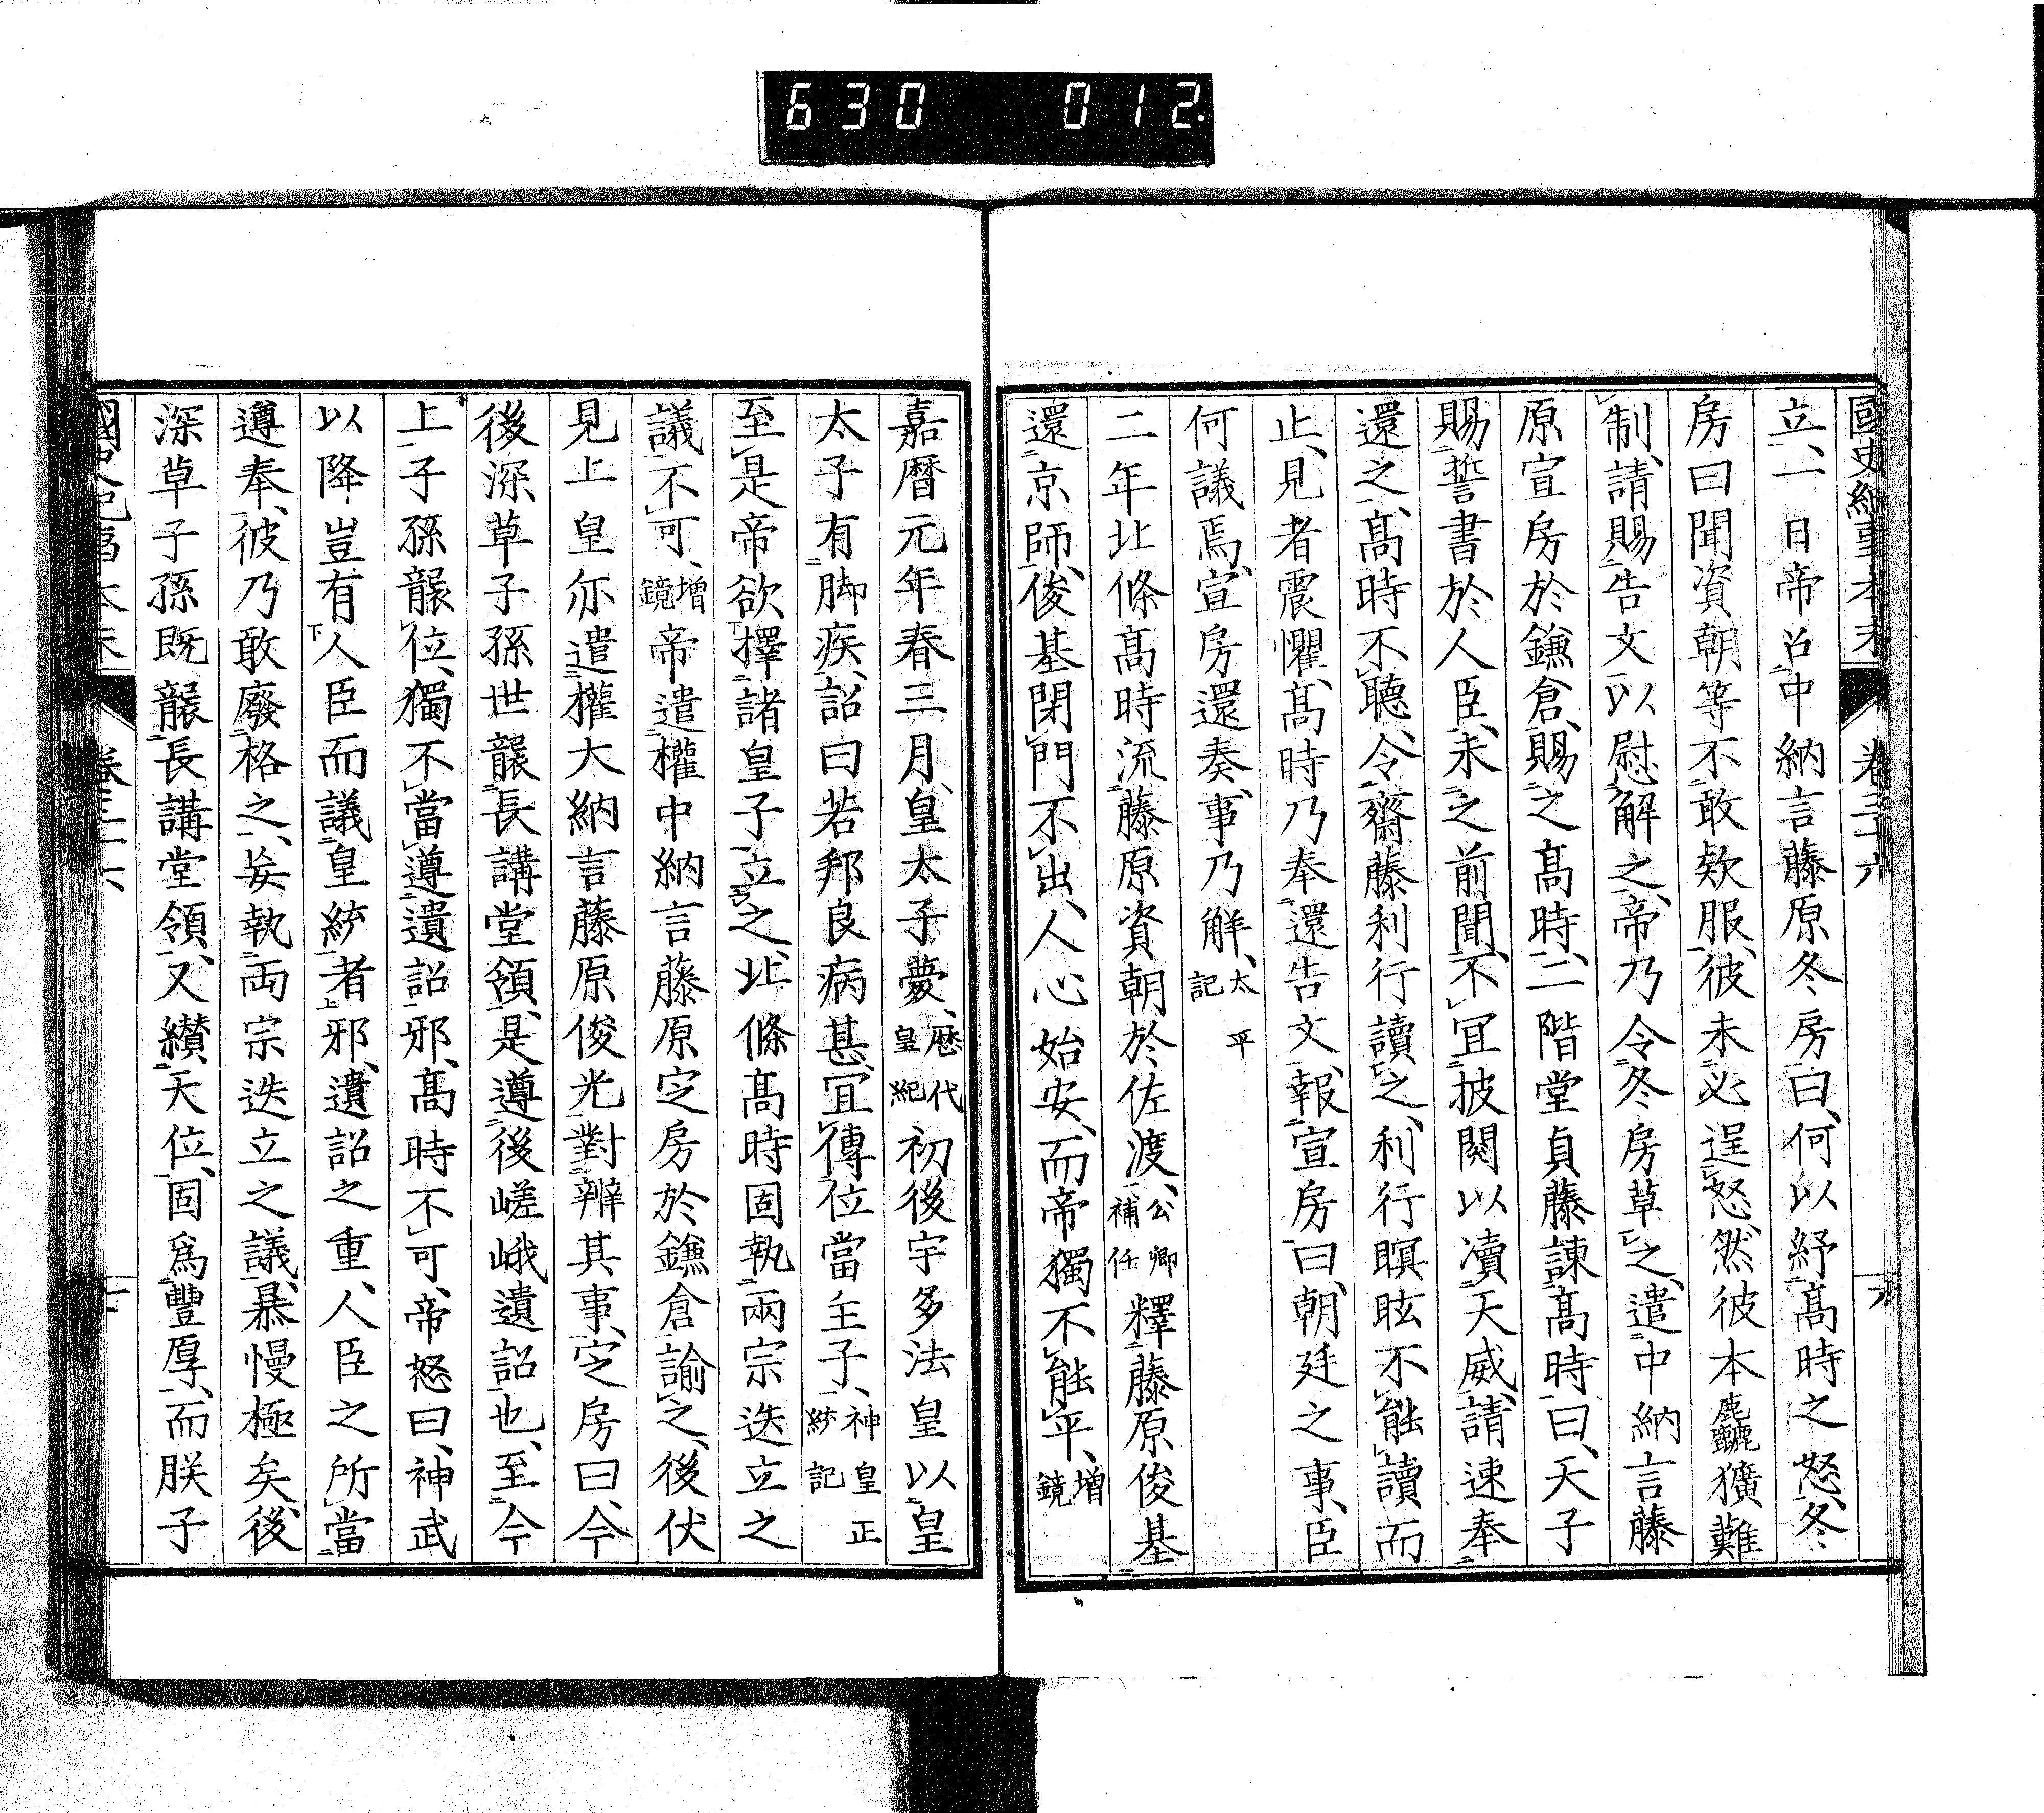 630 012
國史紀事本末 卷三十六
立、一日帝召中納言藤原冬房曰、何以紓高時之怒、冬
房曰聞資朝等不敢欸服、彼未必逞怒、然彼本麤獷難
制、請賜告文以慰解之、帝乃令冬房草之、遣中納言藤
原宣房於鎌倉、賜之高時、二階堂貞藤諫高時曰、天子
賜誓書於人臣、未之前聞、不宜披閱以凟天威、請速奉
還之、高時不聽、令齋藤利行讀之、利行瞑眩不能讀而
止、見者震懼、高時乃奉還告文、報宣房曰、朝廷之事、臣
何議焉、宣房還奏、事乃解、太平記
二年北條高時流藤原資朝於佐渡、公卿補任釋藤原俊基
還京師、俊基閉門不出、人心始安、而帝獨不能平、增鏡
嘉曆元年春三月、皇太子薨、歷代皇紀初後宇多法皇以皇
太子有脚疾、詔曰若邦良病甚、宜傳位當主子、神皇正統記
至是帝欲擇諸皇子立之、北條高時固執兩宗迭立之
議不可、增鏡帝遣權中納言藤原定房於鎌倉諭之、後伏
見上皇亦遣權大納言藤原俊光對辨其事、定房曰、今
後深草子孫世襲長講堂領、是遵後嵯峨遺詔也、至今
上子孫襲位、獨不當遵遺詔邪、高時不可、帝怒曰、神武
以降豈有人臣而議皇統者邪、遺詔之重、人臣之所當
遵奉、彼乃敢廢格之、妄執両宗迭立之議、暴慢極矣、後
深草子孫既襲長講堂領、又纉天位、固爲豐厚、而朕子
國史紀事本末 卷三十六